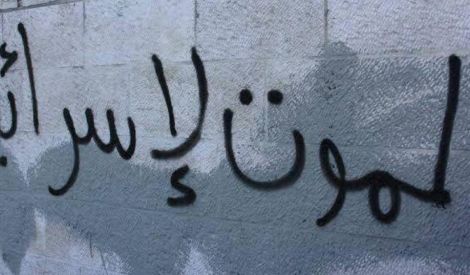 لموت لإسرائ